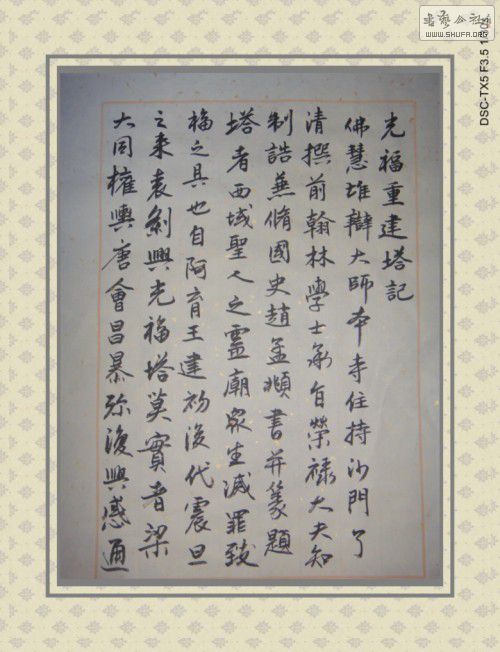 光福重建塔記
佛慧雄辯大師本寺住持沙門了
清撰前翰林學士承旨榮祿大夫知
制誥兼脩國史趙孟頫書并篆題
塔者西域聖人之靈廟眾生滅罪致
福之具也自阿育王建初後代震旦
之來表剎興光福塔莫實者梁
大同權輿唐會昌暴殄復興感通
書藝公社
WWW.SHUFA.ORG
DSC-TX5 F3.5 1